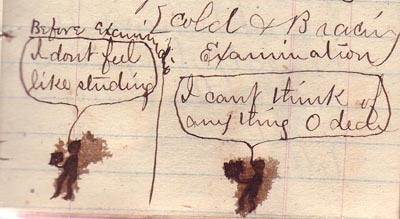 cold & Bracing
Before Examin
Examination
I dont feel
like studing
I cant think of
any thing O dear